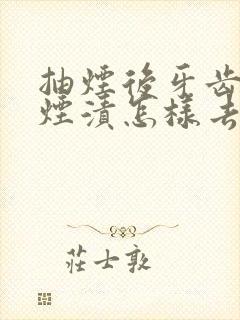 抽煙後牙齒
煙漬怎樣去
莊士敦